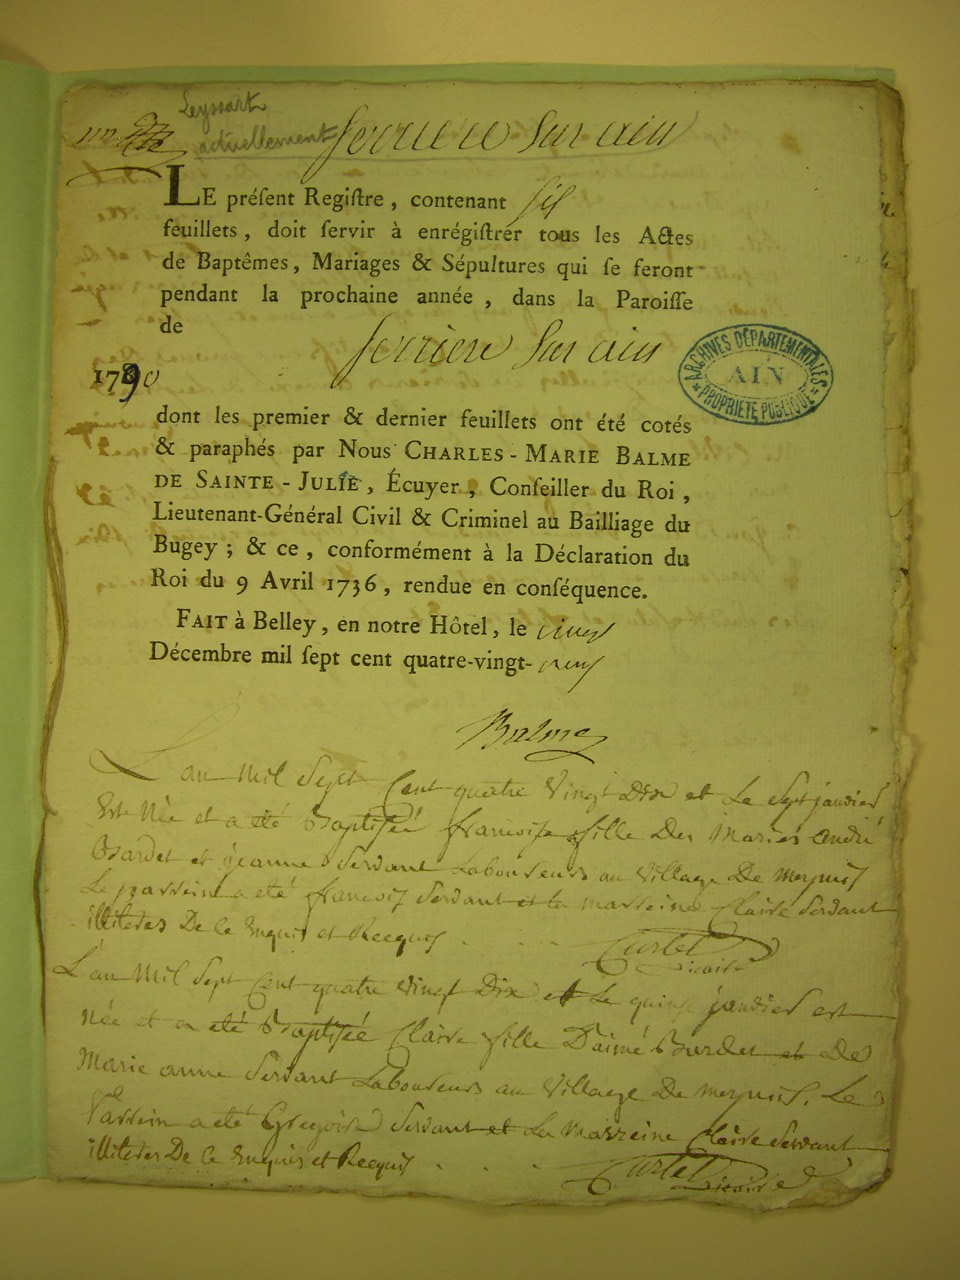 Leyssart
actuellement
ferriere sur ain
LE préſent Regiſtre, contenant six
feuillets, doit ſervir à enrégiſtrer tous les Actes
de Baptêmes, Mariages & Sépultures qui ſe feront
pendant la prochaine année, dans la Paroiſſe
de
ferriere sur ain
1790
ARCHIVES DÉPARTEMENTALES
AIN
PROPRIÉTÉ PUBLIQUE
dont les premier & dernier feuillets ont été cotés
& paraphés par Nous CHARLES-MARIE BALME
DE SAINTE-JULIE, Écuyer, Conſeiller du Roi,
Lieutenant-Général Civil & Criminel au Bailliage du
Bugey; & ce, conformément à la Déclaration du
Roi du 9 Avril 1736, rendue en conſéquence.
FAIT à Belley, en notre Hôtel, le cinq
Décembre mil ſept cent quatre-vingt-neuf
Balme
L'an Mil Sept Cent quatre Vingt Dix et Le Sept janvier
Est Née et a été Baptisée francoise fille Des Mariés andré
Bardet et jeanne Servant Laboureurs au Village De
Le parrein a été francois Servant et la marreine Claire Servant
illiteres De ce Enquis et Recquis
Curtet Vicaire
L'an Mil Sept Cent quatre Vingt Dix et Le quinze janvier est
Née et a été Baptisée Claire fille D'aimé Burdet et De
Marie anne Servant Laboureurs au Village De Le
Parrein a été Gregoire Servant et La Marreine Claire Servant
illiteres De ce Enquis et Recquis
Curtet Vicaire